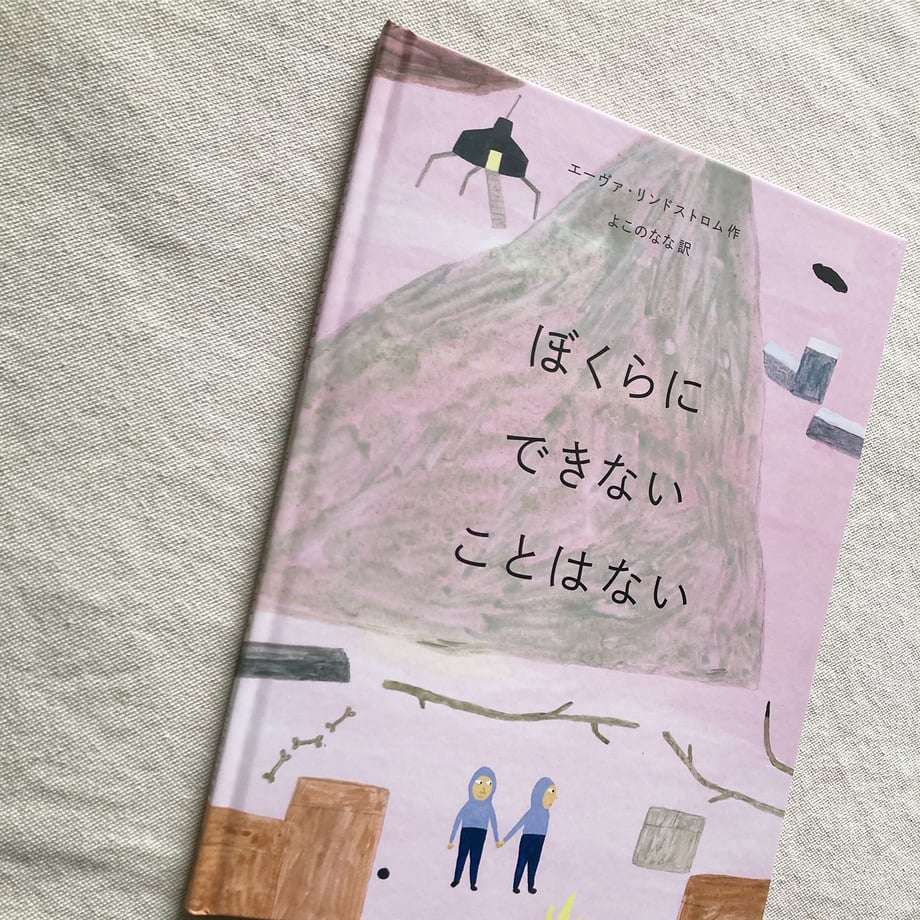 エーヴァ・リンドストロム 作
よこのなな 訳
ぼくらに
できない
ことはない